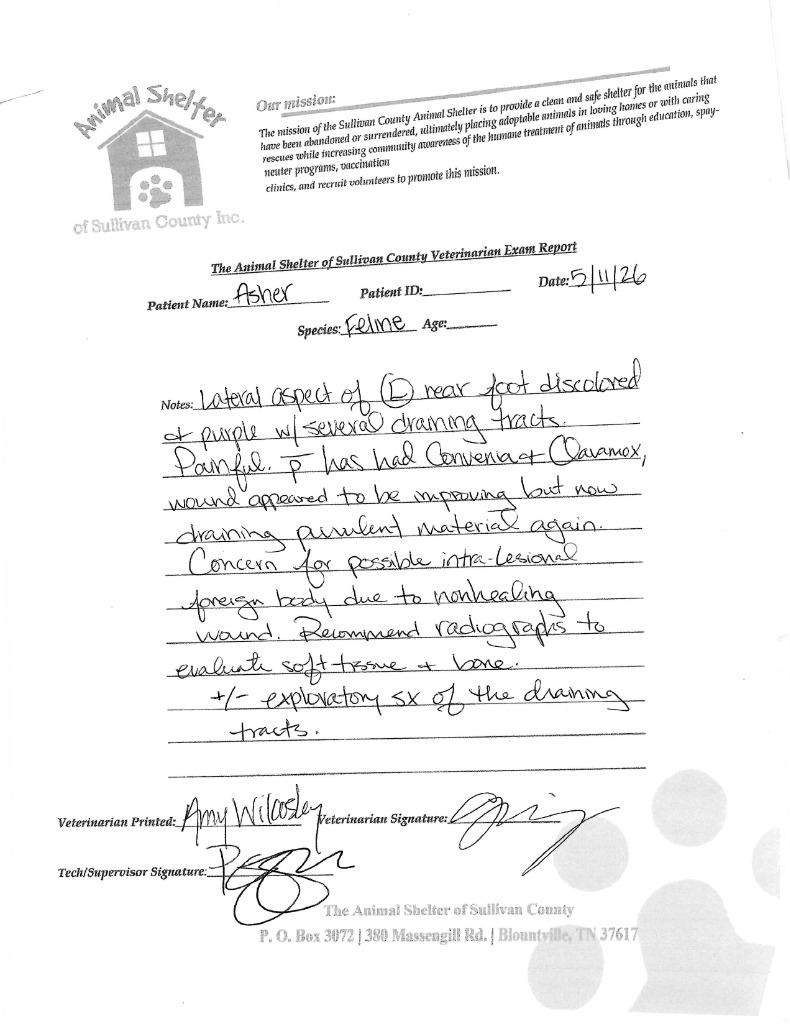 Animal Shelter
of Sullivan County Inc.
Our mission:
The mission of the Sullivan County Animal Shelter is to provide a clean and safe shelter for the animals that
have been abandoned or surrendered, ultimately placing adoptable animals in loving homes or with caring
rescues while increasing community awareness of the humane treatment of animals through education, spay-
neuter programs, vaccination
clinics, and recruit volunteers to promote this mission.
The Animal Shelter of Sullivan County Veterinarian Exam Report
Patient Name: Asher Patient ID: Date: 5/11/26
Species: Feline Age:
Notes: Lateral aspect of (L) rear foot discolored
& purple w/ several draining tracts.
Painful. p̄ has had Convenia & Clavamox,
wound appeared to be improving but now
draining purulent material again.
Concern for possible intra-lesional
foreign body due to nonhealing
wound. Recommend radiographs to
evaluate soft tissue + bone.
+/- exploratory sx of the draining
tracts.
Veterinarian Printed: Amy Veterinarian Signature:
Tech/Supervisor Signature:
The Animal Shelter of Sullivan County
P. O. Box 3072 | 380 Massengill Rd. | Blountville, TN 37617